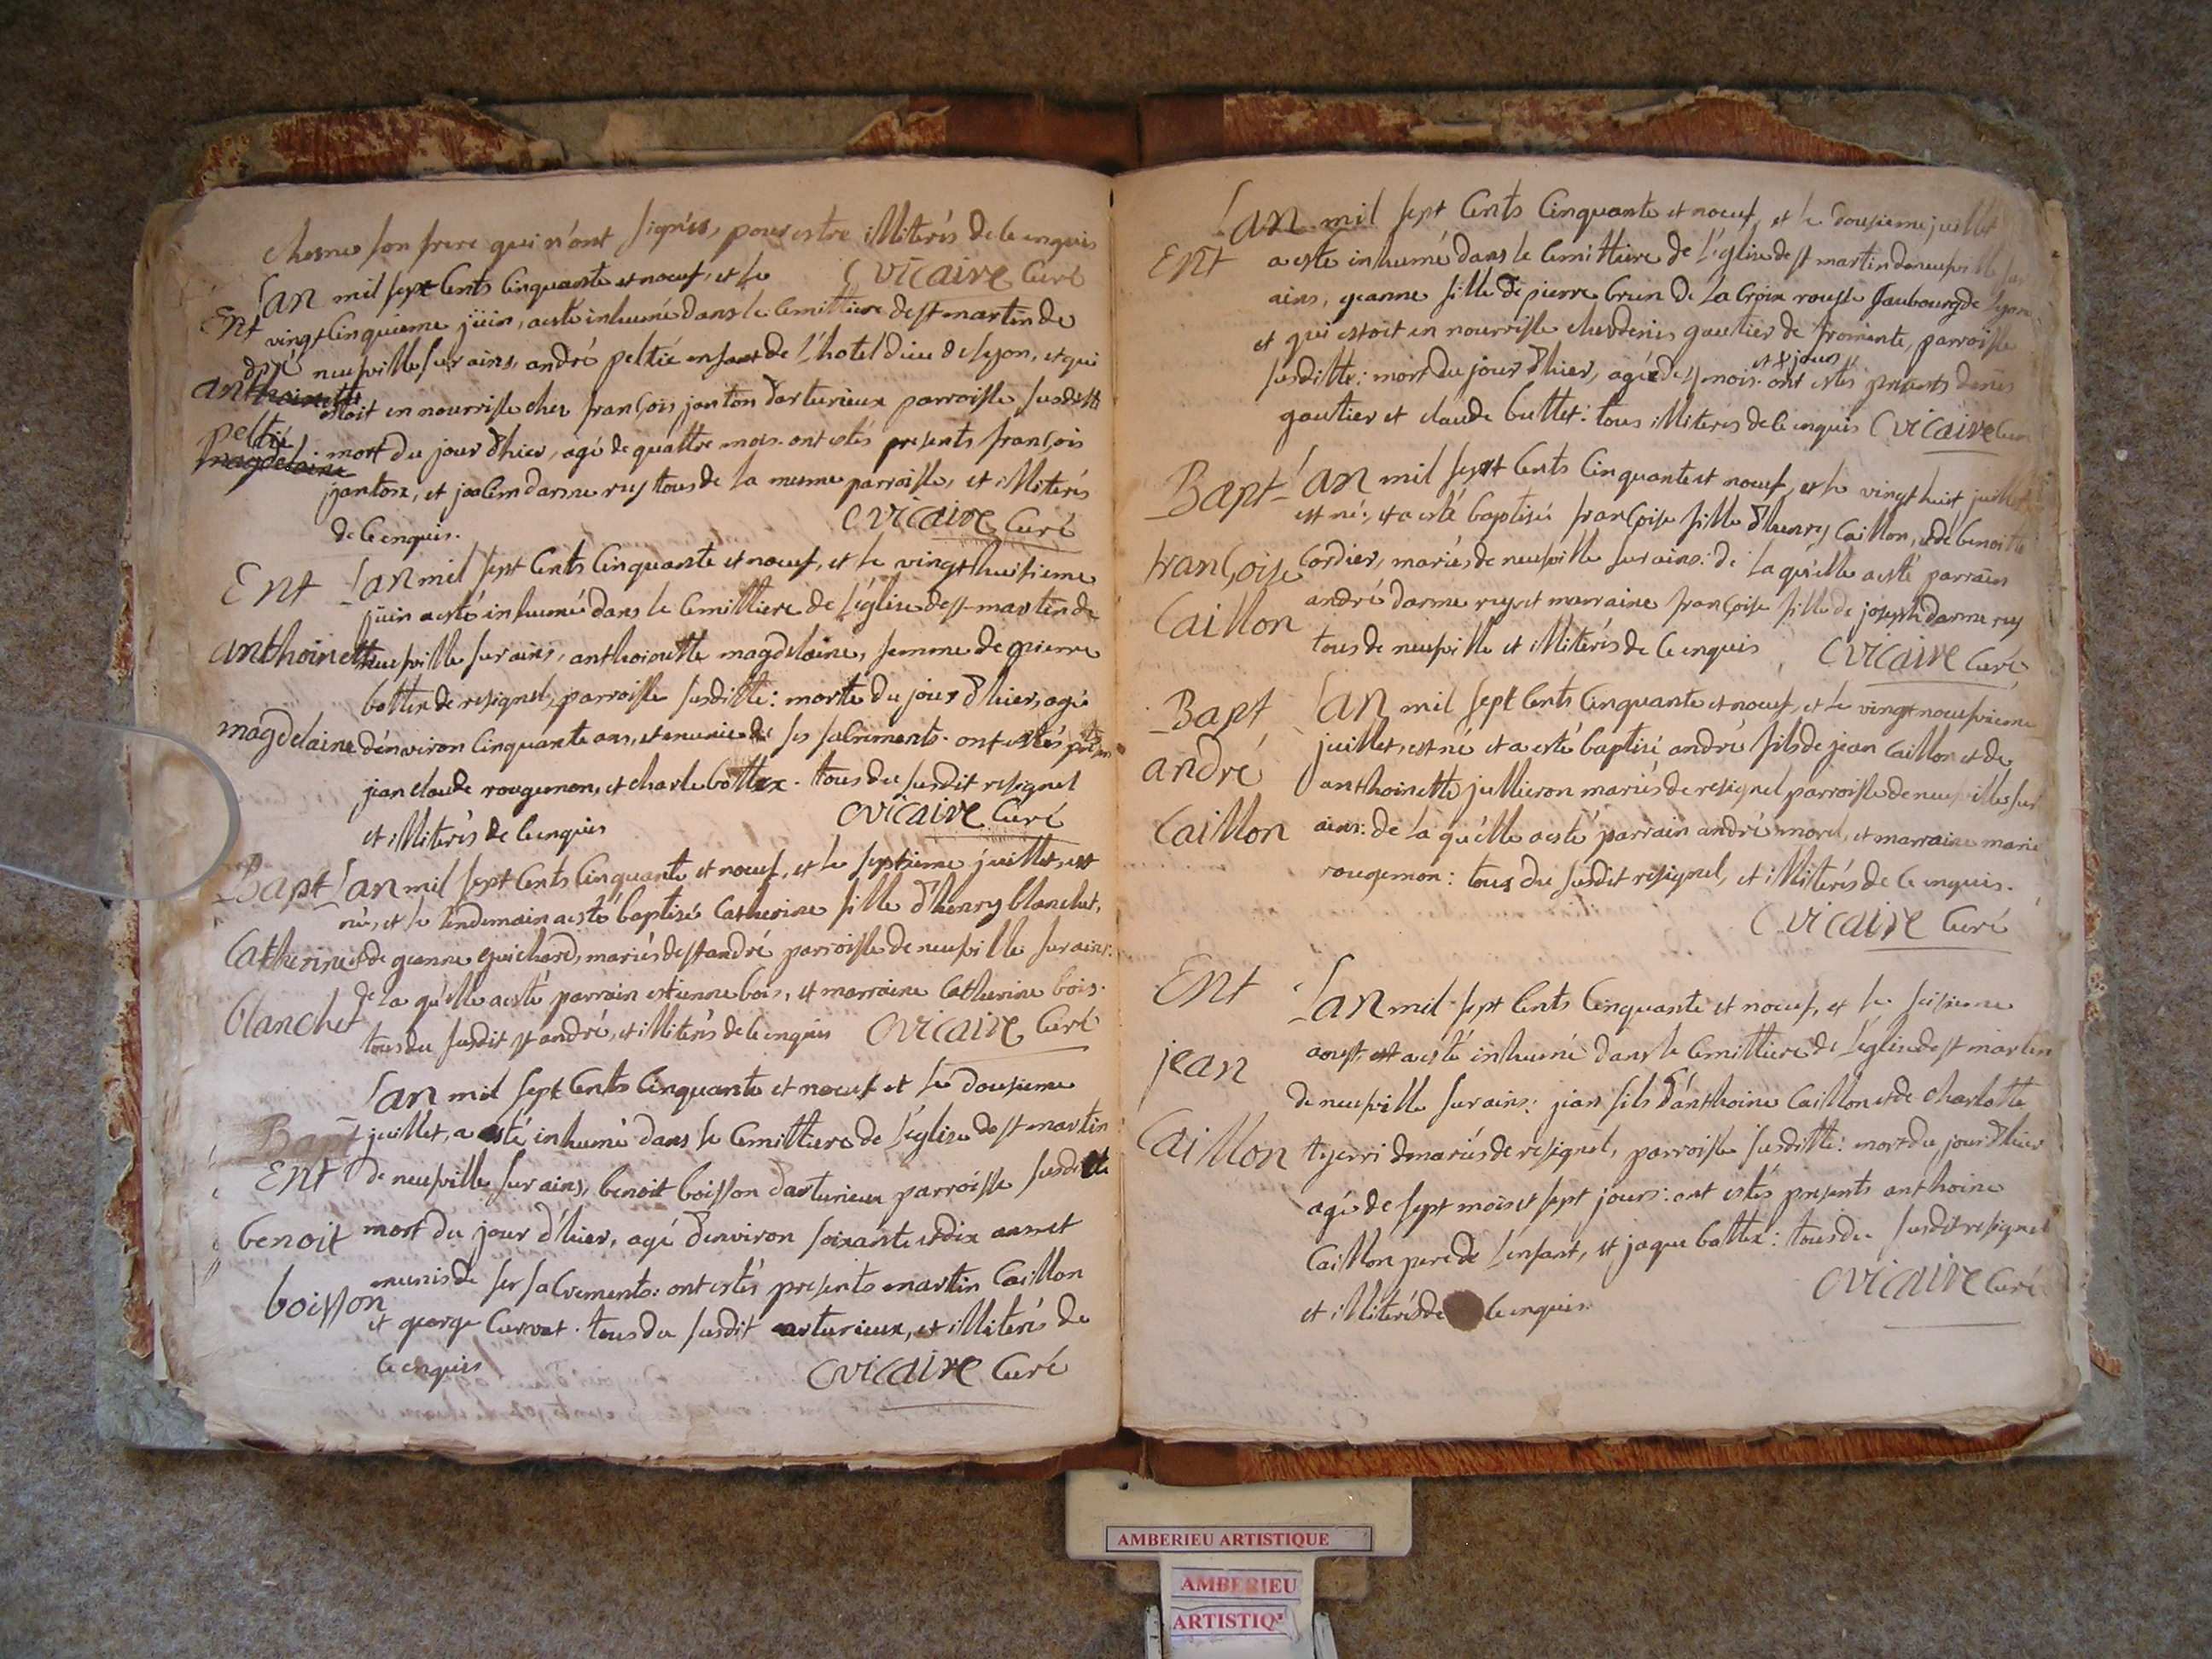 chesne son frere qui n'ont signés, pour estre illiterés de ce enquis
Cvicaire Curé
Ent
L'an mil sept Cents Cinquante et noeuf, et le
vingt Cinquieme juin, a esté inhumé dans le Cemittiere de st martin de
dré neufville sur ains, andré peltié enfant de l'hotel dieu de lyon, et qui
an
estoit en nourrisse chez françois janton d'arturieux parroisse susditte
peltié
mort du jour d'hier, agé de quattre mois. ont estés presents françois
janton, et joaCim darme rey tous de la mesme parroisse, et illiterés
de ce enquis.
Cvicaire Curé
Ent
L'an mil sept Cents Cinquante et noeuf, et le vingt huitieme
juin a esté inhumé dans le Cemittiere de l'église de st martin de
anthoinette
neufville sur ains, anthoinette magdelaine, femme de pierre
bottex de resignel, parroisse susditte: morte du jour d'hier, agé
magdelaine
d'environ Cinquante ans, et munie de ses saCrements. ont estés
jean claude rougemon, et charle bottex. tous du susdit resignel
et illiterés de ce enquis
Cvicaire Curé
Bapt
L'an mil sept Cents Cinquante et noeuf, et le septieme juillet, est
né, et le lendemain a esté baptisé Catherine fille d'henry blanchet,
Catherine
et de jeanne guichard, mariés de st andré parroisse de neufville sur ains:
blanchet
de la qu'elle a esté parrain estienne bois, et marraine Catherine bois.
tous du susdit st andré, et illiterés de ce enquis Cvicaire Curé
L'an mil sept Cents Cinquante et noeuf et le dousieme
Bapt
juillet, a esté inhumé dans le Cemittiere de l'église de st martin
Ent
de neufville sur ains, benoit boisson d'arturieux parroisse susditte
benoit
mort du jour d'hier, agé d'environ soixante et dix ans et
boisson
munis de ses saCrements: ont estés presents martin Caillon
et george Curvat. tous du susdit arturieux, et illiterés de
ce enquis
Cvicaire Curé
L'an mil sept Cents Cinquante et noeuf, et le dousieme juillet
Ent
a esté inhumé dans le Cemittiere de l'église de st martin de neufville sur
ains, jeanne fille de pierre brun de la Croix rousse faubourg de lyon
et qui estoit en nourrisse chez denis gautier de fromente, parroisse
et 8 jours
susditte: mort du jour d'hier, agé de mois. ont estés presents denis
gautier et claude buttet: tous illiterés de ce enquis Cvicaire Curé
Bapt
L'an mil sept Cents Cinquante et noeuf, et le vingt huit juillet
est né, et a esté baptisé françoise fille d'henry Caillon, et de benoitte
françoise
Cordier, mariés de neufville sur ains: de la qu'elle a esté parrain
andré darme rey et marraine françoise fille de joseph darme rey
Caillon
tous de neufville et illiterés de ce enquis Cvicaire Curé
Bapt
L'an mil sept Cents Cinquante et noeuf, et le vingt noeufvieme
juillet, est né et a esté baptisé andré fils de jean Caillon et de
andré
anthoinette jullieron mariés de resignel parroisse de neufville sur
Caillon
ains: de la qu'elle a esté parrain andré morel, et marraine marie
rougemon: tous du susdit resignel, et illiterés de ce enquis.
Cvicaire Curé
Ent
L'an mil sept Cents Cinquante et noeuf, et le seisieme
aoust, a esté inhumé dans le Cemittiere de l'église de st martin
jean
de neufville sur ains: jean fils d'anthoine Caillon et de charlotte
Caillon
mariés de resignel, parroisse susditte: mort du jour d'hier
agé de sept mois et sept jours: ont estés presents anthoine
Caillon pere de l'enfant, et jaque bottex: tous du susdit resignel
et illiterés de ce enquis.
Cvicaire Curé
AMBERIEU ARTISTIQUE
AMBERIEU
ARTISTIQ